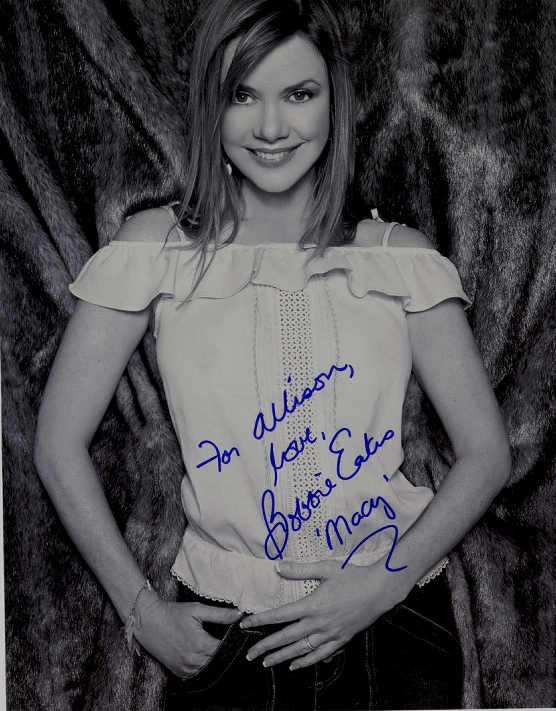 For Allison,
love,
Bobbie Eakes
'Macy'